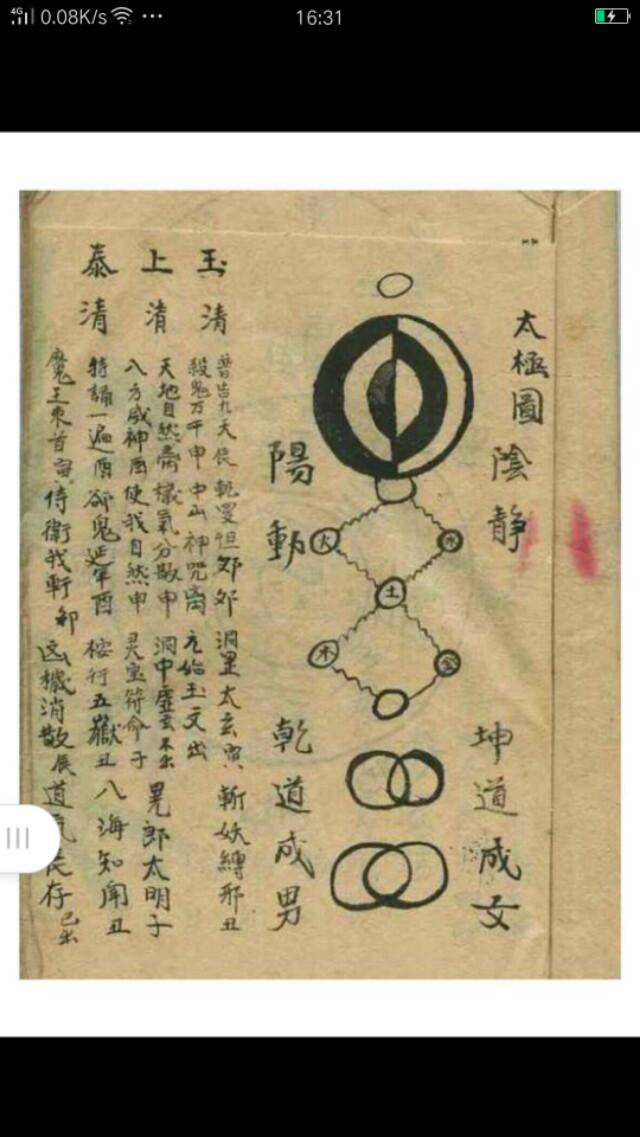 4G 0.08K/s ... 16:31
太極圖
陰靜
陽動
火 水
土
木 金
坤道成女
乾道成男
玉清
上清
泰清
普告九天辰 乾罗怛 洞罡太玄寅 斬妖縛邪丑
殺鬼万千申 中山神咒 元始玉文出
天地自然 穢氣分散申 洞中虚玄 晃郎太明子
八方威神酉 使我自然申 灵宝符命子
持誦一遍酉 卻鬼延年酉 桉行五嶽丑 八海知闻丑
魔王束首寅 侍衛我軒卯 凶穢消散辰 道炁長存已出